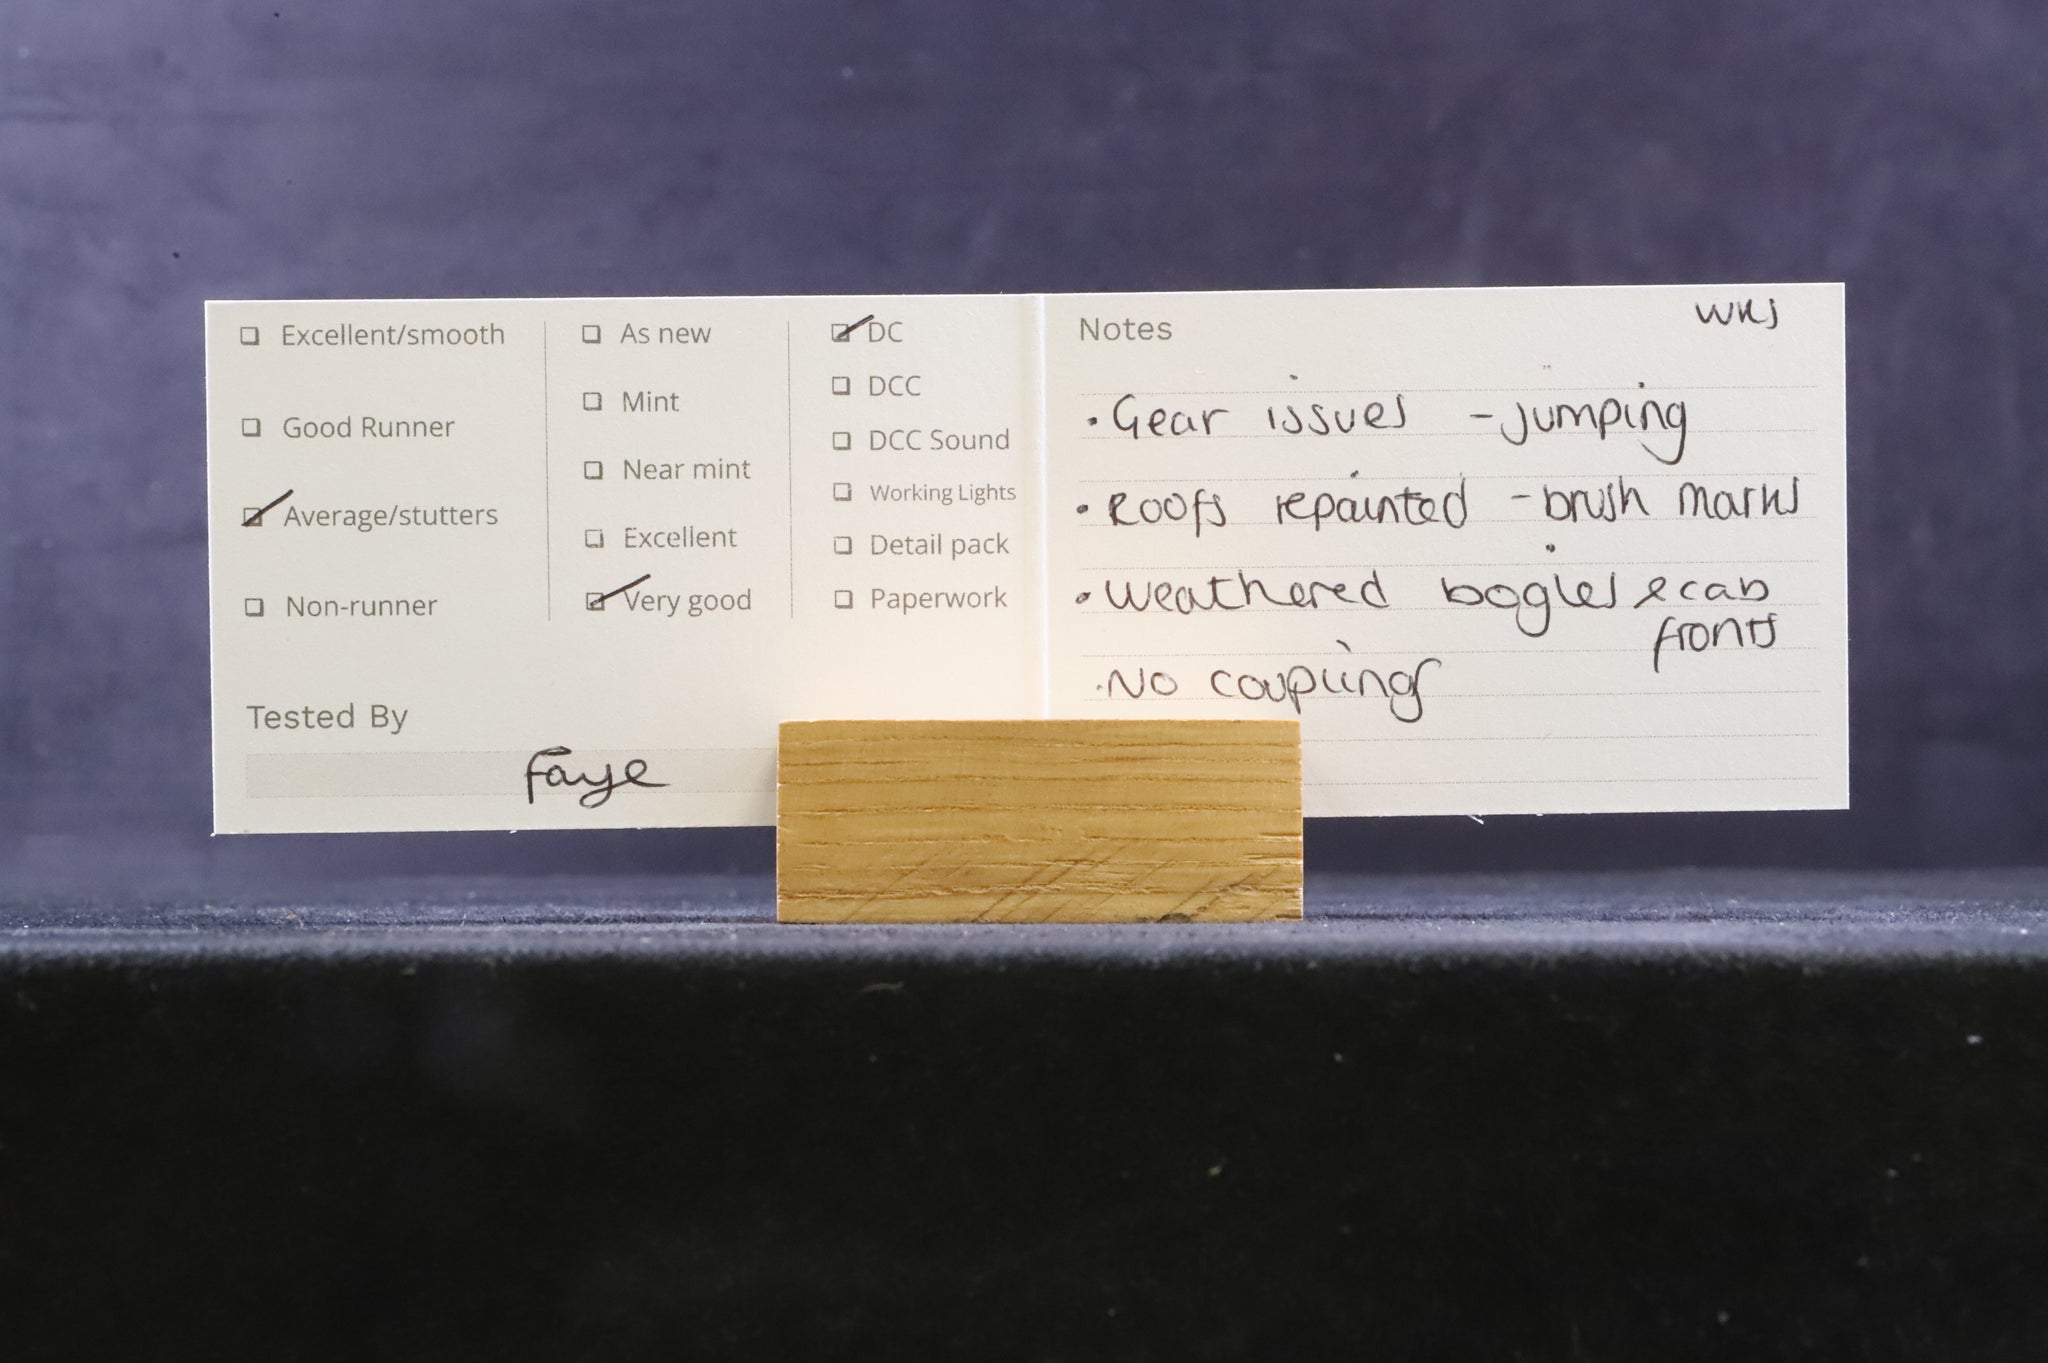 Excellent/smooth
Good Runner
Average/stutters
Non-runner
As new
Mint
Near mint
Excellent
Very good
DC
DCC
DCC Sound
Working Lights
Detail pack
Paperwork
Tested By
Faye
Notes
• Gear issues - jumping
• Roofs repainted - brush marks
• Weathered bogies & cab
fronts
• No couplings